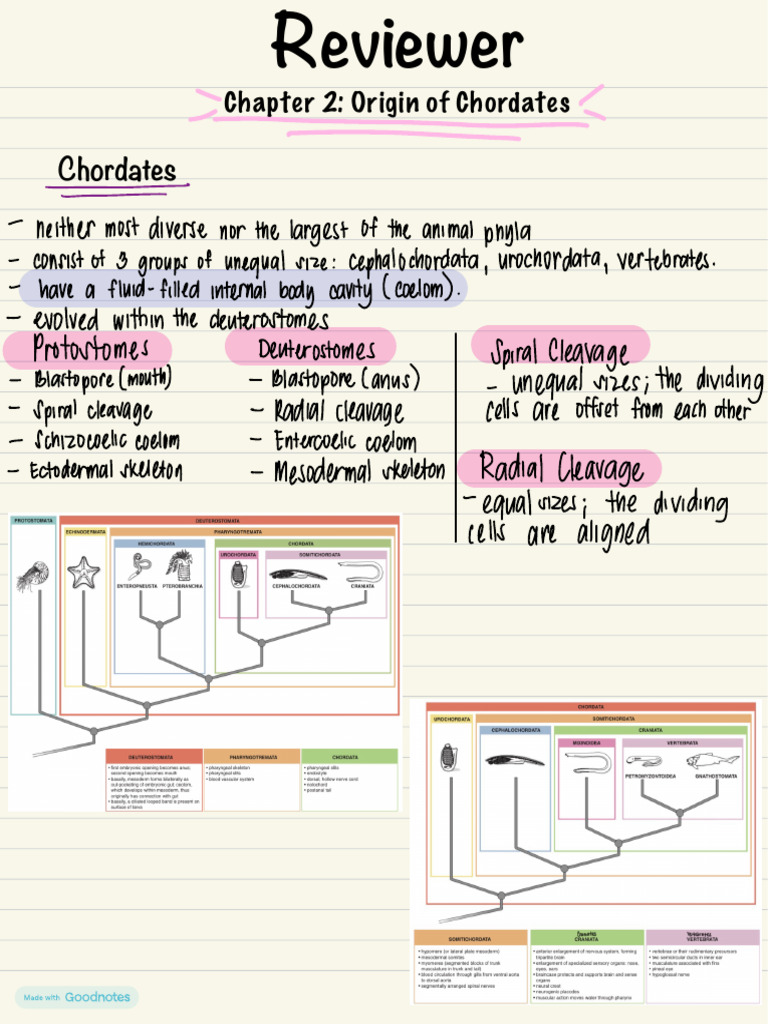 Reviewer
Chapter 2: Origin of Chordates
Chordates
- neither most diverse nor the largest of the animal phyla
- consist of 3 groups of unequal size: cephalochordata, urochordata, vertebrates.
- have a fluid-filled internal body cavity (coelom).
- evolved within the deuterostomes
Protostomes
- Blastopore (mouth)
- Spiral cleavage
- Schizocoelic coelom
- Ectodermal skeleton
Deuterostomes
- Blastopore (anus)
- Radial cleavage
- Entercoelic coelom
- Mesodermal skeleton
Spiral Cleavage
- unequal sizes; the dividing
cells are offset from each other
Radial Cleavage
- equal sizes; the dividing
cells are aligned
PROTOSTOMATA
DEUTEROSTOMATA
ECHINODERMATA
PHARYNGOTREMATA
HEMICHORDATA
CHORDATA
UROCHORDATA
SOMITICHORDATA
ENTEROPNEUSTA
PTEROBRANCHIA
CEPHALOCHORDATA
CRANIATA
DEUTEROSTOMATA
• first embryonic opening becomes anus,
second opening becomes mouth
• basally, mesoderm forms bilaterally as
out-pocketing of embryonic gut; coelom,
which develops within mesoderm, thus
originally has connection with gut
• basally, a ciliated looped band is present on
surface of larva
PHARYNGOTREMATA
• pharyngeal skeleton
• pharyngeal slits
• blood vascular system
CHORDATA
• pharyngeal slits
• endostyle
• dorsal, hollow nerve cord
• notochord
• postanal tail
CHORDATA
UROCHORDATA
SOMITICHORDATA
CEPHALOCHORDATA
CRANIATA
MYXINOIDEA
VERTEBRATA
PETROMYZONTOIDEA
GNATHOSTOMATA
SOMITICHORDATA
• hypomere (or lateral plate mesoderm)
• mesodermal somites
• myomeres (segmented blocks of trunk
musculature in trunk and tail)
• blood circulation through gills from ventral aorta
to dorsal aorta
• segmentally arranged spinal nerves
CRANIATA
• anterior enlargement of nervous system, forming
tripartite brain
• enlargement of specialized sensory organs: nose,
eyes, ears
• braincase protects and supports brain and sense
organs
• neural crest
• neurogenic placodes
• muscular action moves water through pharynx
VERTEBRATA
• vertebrae or their rudimentary precursors
• two semicircular ducts in inner ear
• musculature associated with fins
• pineal eye
• hypoglossal nerve
Made with Goodnotes